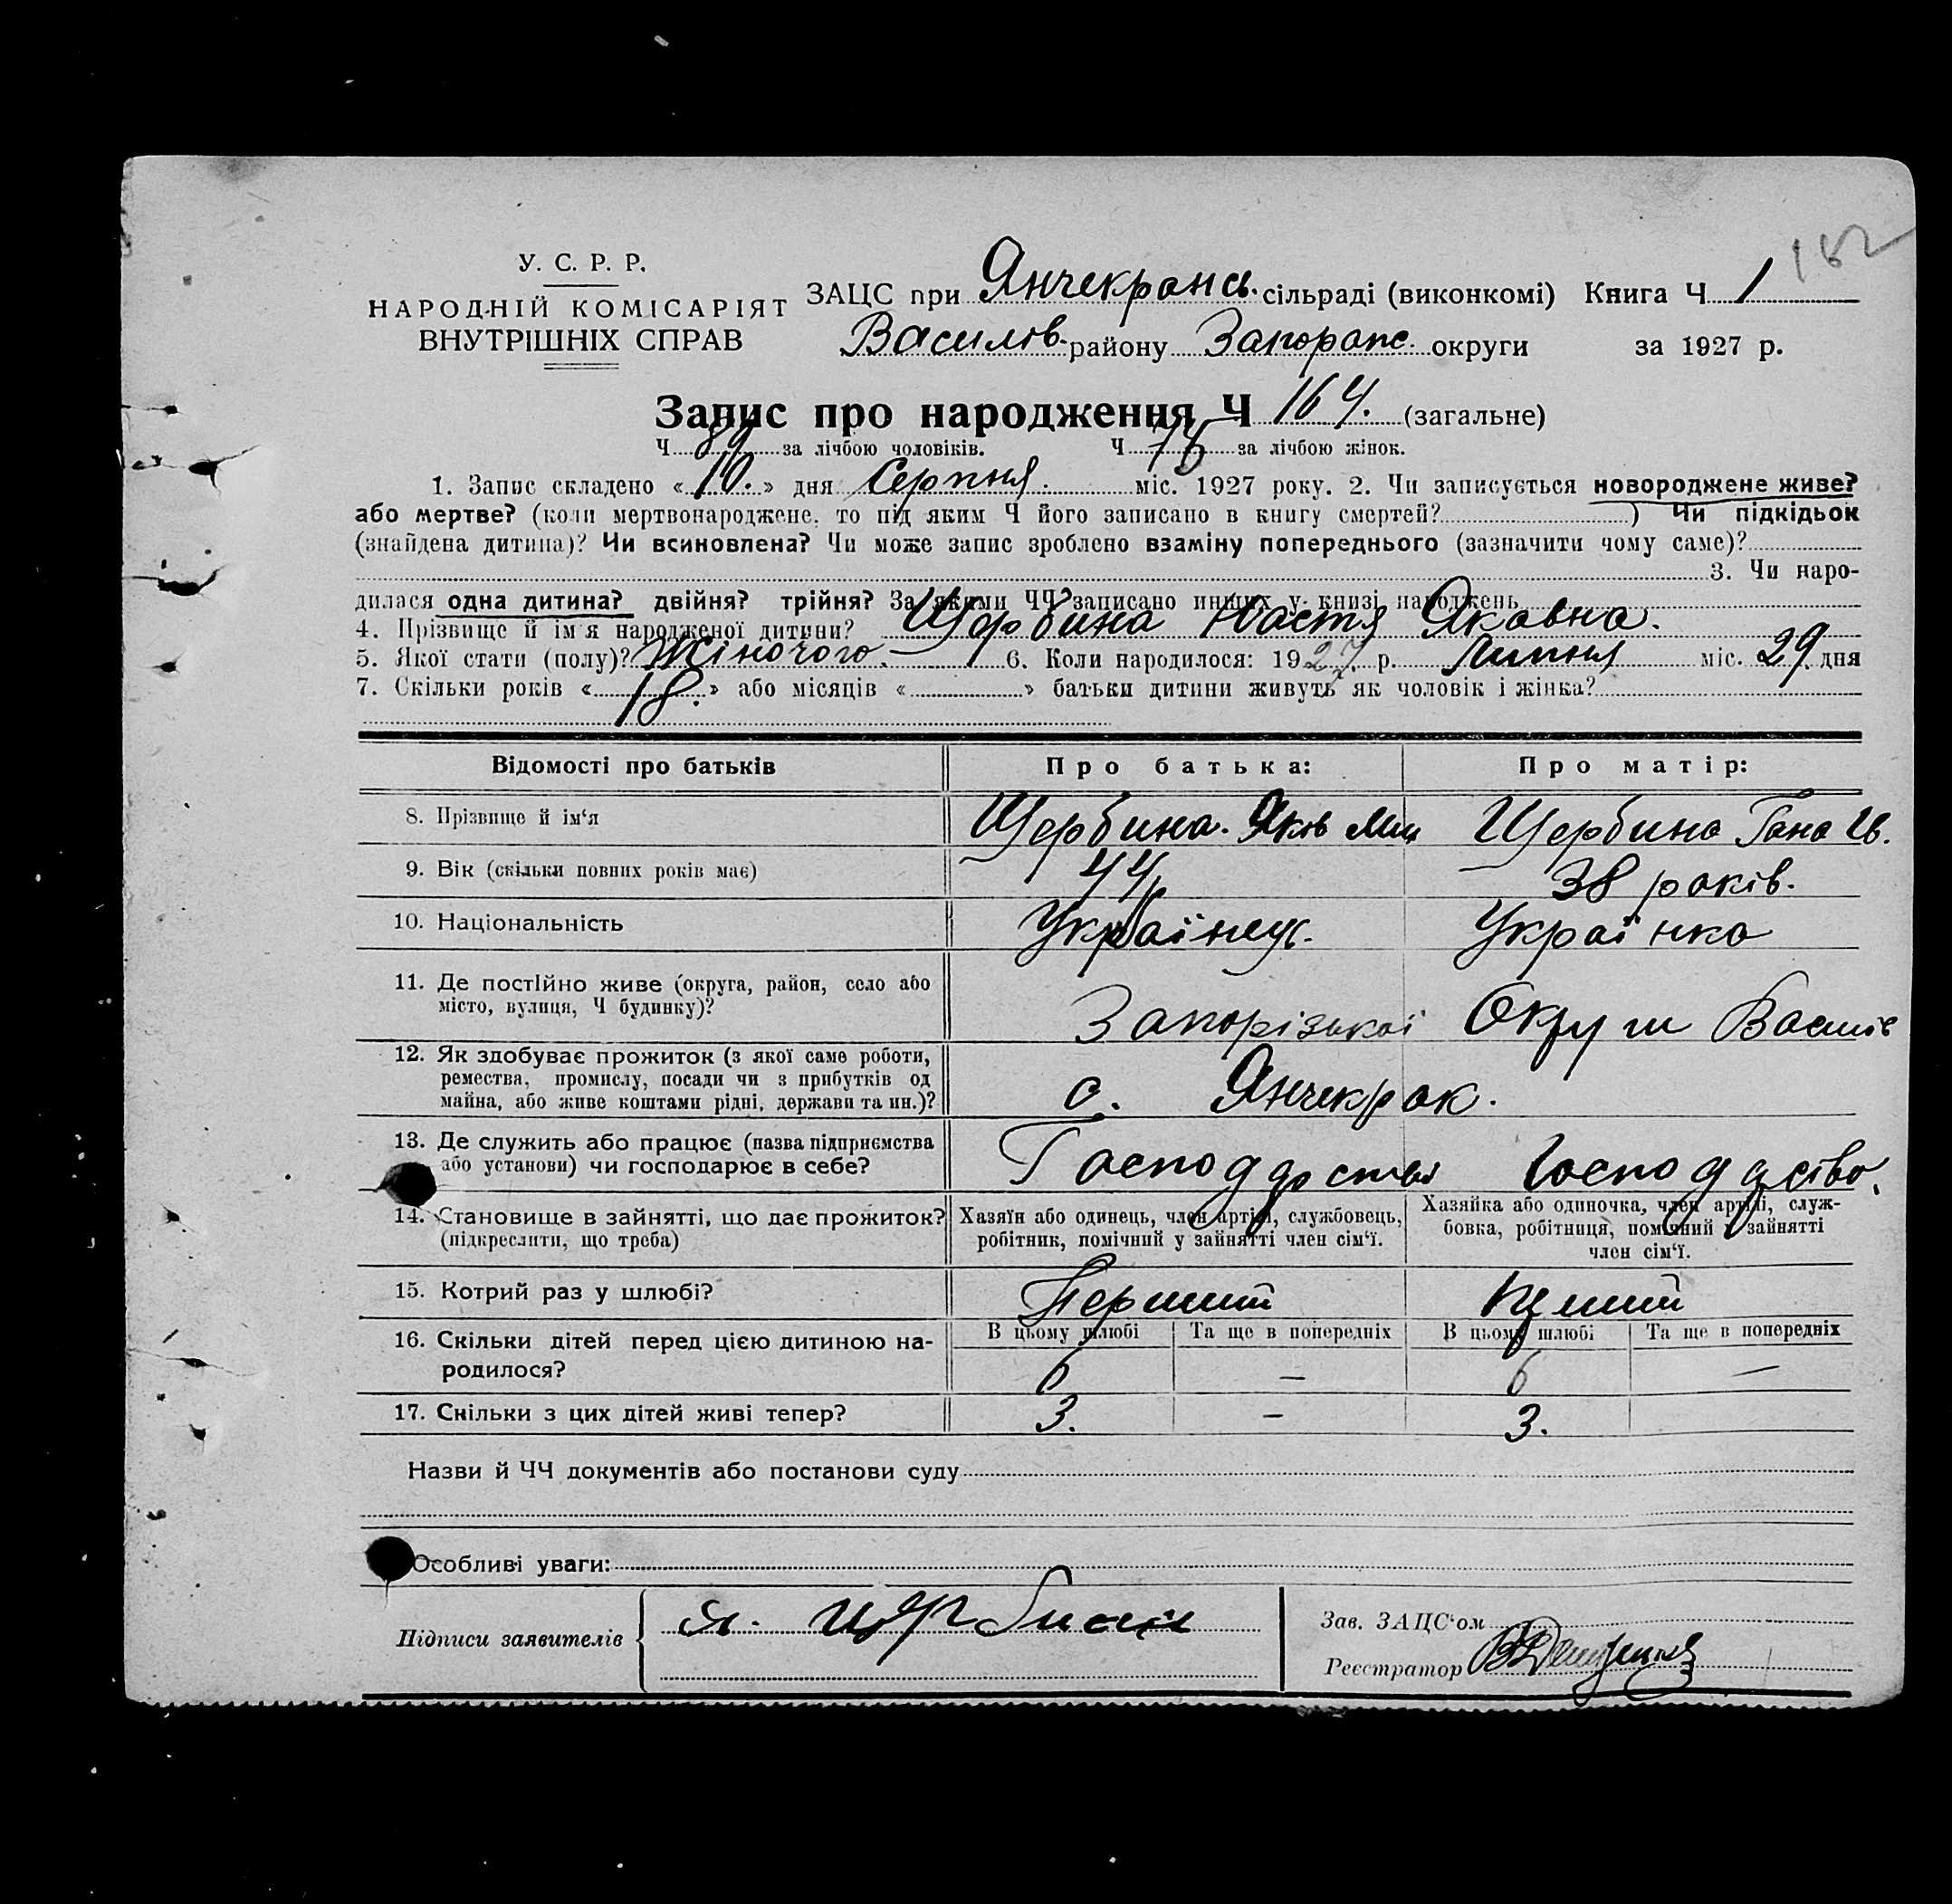 162
У. С. Р. Р.
НАРОДНІЙ КОМІСАРІЯТ
ВНУТРІШНІХ СПРАВ
ЗАЦС при Янчекрансь. сільраді (виконкомі) Книга Ч 1
Василів. району Запоріж. округи за 1927 р.
Запис про народження Ч 164. (загальне)
Ч 89 за лічбою чоловіків. Ч 75 за лічбою жінок.
1. Запис складено « 10. » дня Серпня. міс. 1927 року. 2. Чи записується новороджене живе?
або мертве? (коли мертвонароджене, то під яким Ч його записано в книгу смертей? ) Чи підкідьок
(знайдена дитина)? Чи всиновлена? Чи може запис зроблено взаміну попереднього (зазначити чому саме)?
3. Чи наро-
дилася одна дитина? двійня? трійня? За якими ЧЧ записано инших у книзі народжень
4. Прізвище й ім'я народженої дитини? Щербина Настя Яковна.
5. Якої стати (полу)? Жіночого. 6. Коли народилося: 1927. р. Липня міс. 29 дня
7. Скільки років « 18. » або місяців « » батьки дитини живуть як чоловік і жінка?
Відомості про батьків Про батька: Про матір:
8. Прізвище й ім‘я Щербина. Яків Мих Щербина Гана Ів.
9. Вік (скільки повних років має) 44р 38 років.
10. Національність Українець. Українка
11. Де постійно живе (округа, район, село або
місто, вулиця, Ч будинку)? Запорізької Округи Василів
12. Як здобуває прожиток (з якої саме роботи,
ремества, промислу, посади чи з прибутків од
майна, або живе коштами рідні, держави та ин.)? с. Янчекрак.
13. Де служить або працює (назва підприємства
або установи) чи господарює в себе?
14. Становище в зайнятті, що дає прожиток?
(підкреслити, що треба)
Хазяїн або одинець, член артілі, службовець,
робітник, помічний у зайнятті член сім‘ї.
Хазяйка або одиночка, член артілі, служ-
бовка, робітниця, помічний у зайнятті
член сім‘ї.
15. Котрий раз у шлюбі? Перший
В цьому шлюбі Та ще в попередніх В цьому шлюбі Та ще в попередніх
16. Скільки дітей перед цією дитиною на-
родилося? 6 — 6 —
17. Скільки з цих дітей живі тепер? 3. — 3.
Назви й ЧЧ документів або постанови суду
Особливі уваги:
Підписи заявителів
Зав. ЗАЦС‘ом
Реєстратор